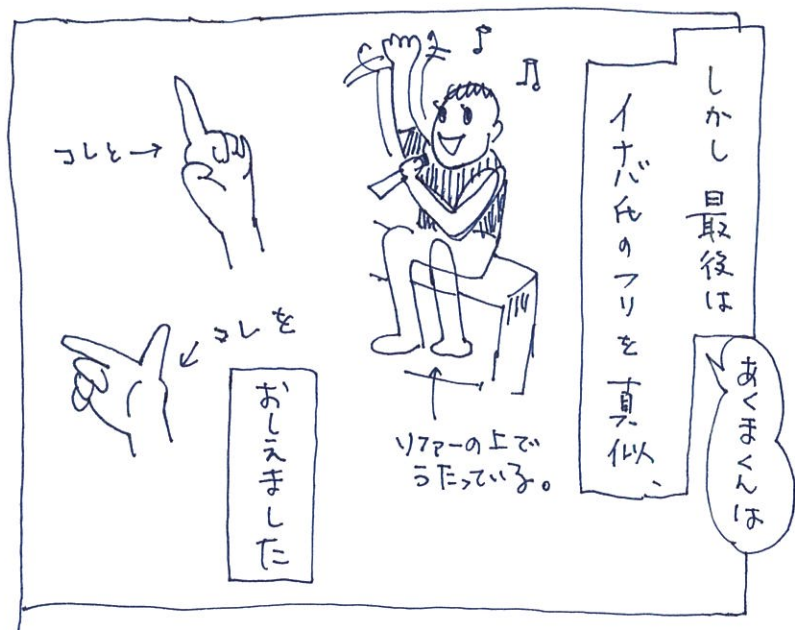 しかし最役は
イナバ氏のフリを真似、
あくまくんは
ソファーの上で
うたっている。
コレを→
コレを
おしえました